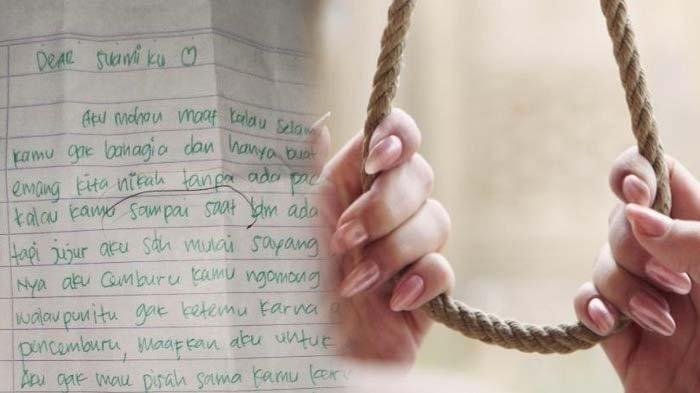 Dear suami ku ♡
Aku mohon maaf kalau selam
kamu gak bahagia dan hanya buat
emang kita nikah tanpa ada pac
kalau kamu sampai saat ada
tapi jujur aku sdh mulai sayang
nya aku cemburu kamu ngomong
walaupunitu gak ketemu karna
pencemburu, maafkan aku untuk
Aku gak mau pisah sama kamu